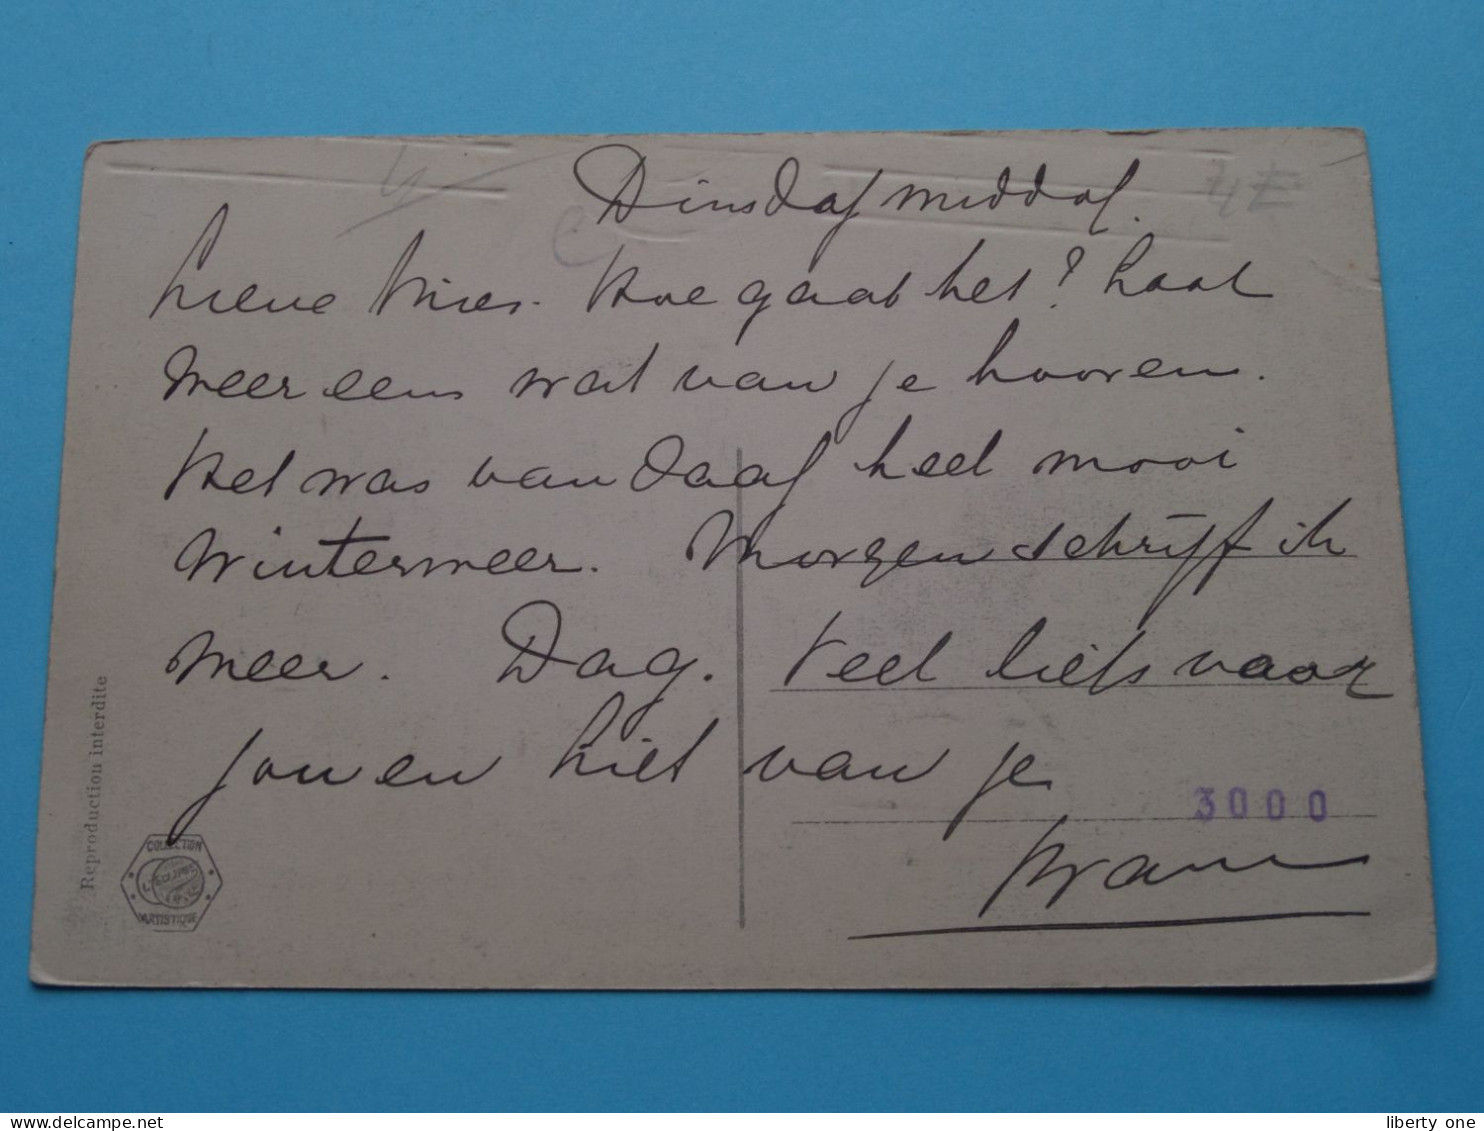 Dinsdagmiddag.
Lieve Mies. Hoe gaat het? Laat
meer eens wat van je hooren.
Het was vandaag heel mooi
winterweer. Morgen schrijf ik
meer. Dag. Veel liefs voor
jou en Piet van je
Bram
3000
Reproduction interdite
COLLECTION
ARTISTIQUE
liberty one